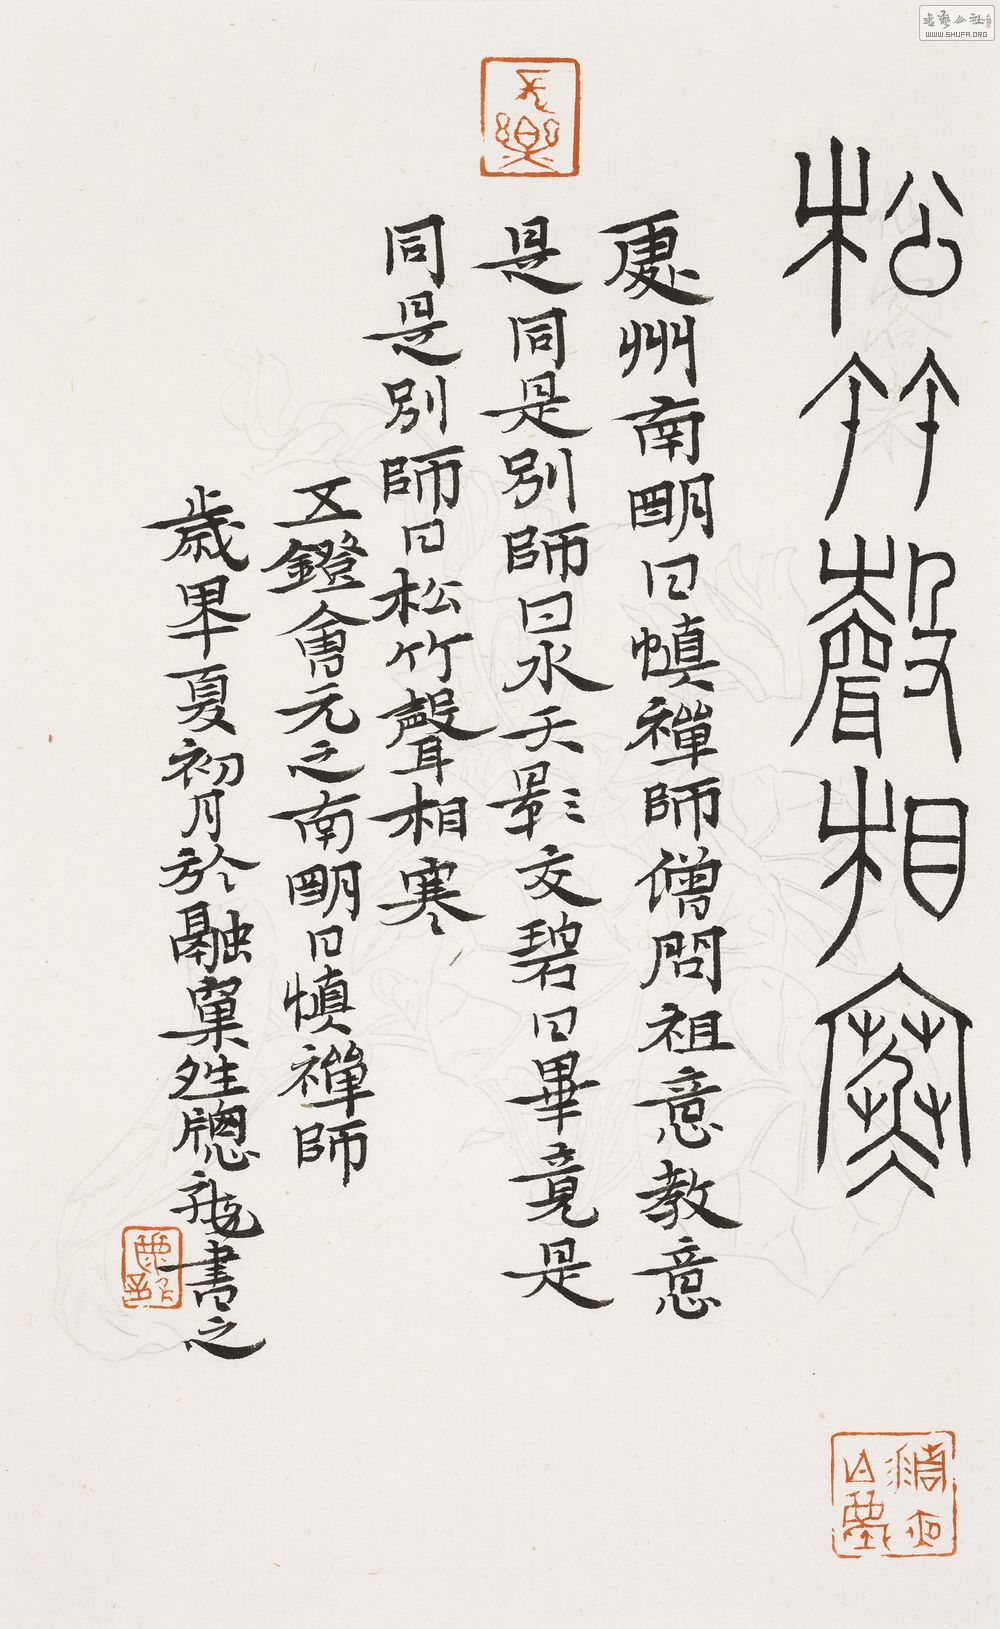 松竹聲相寒
處州南明日慎禪師僧問祖意教意
是同是別師曰水天影交碧曰畢竟是
同是別師曰松竹聲相寒
五鐙會元之南明日慎禪師
歲畢夏初月於融窠牲牕書之
書藝公社
WWW.SHUFA.ORG